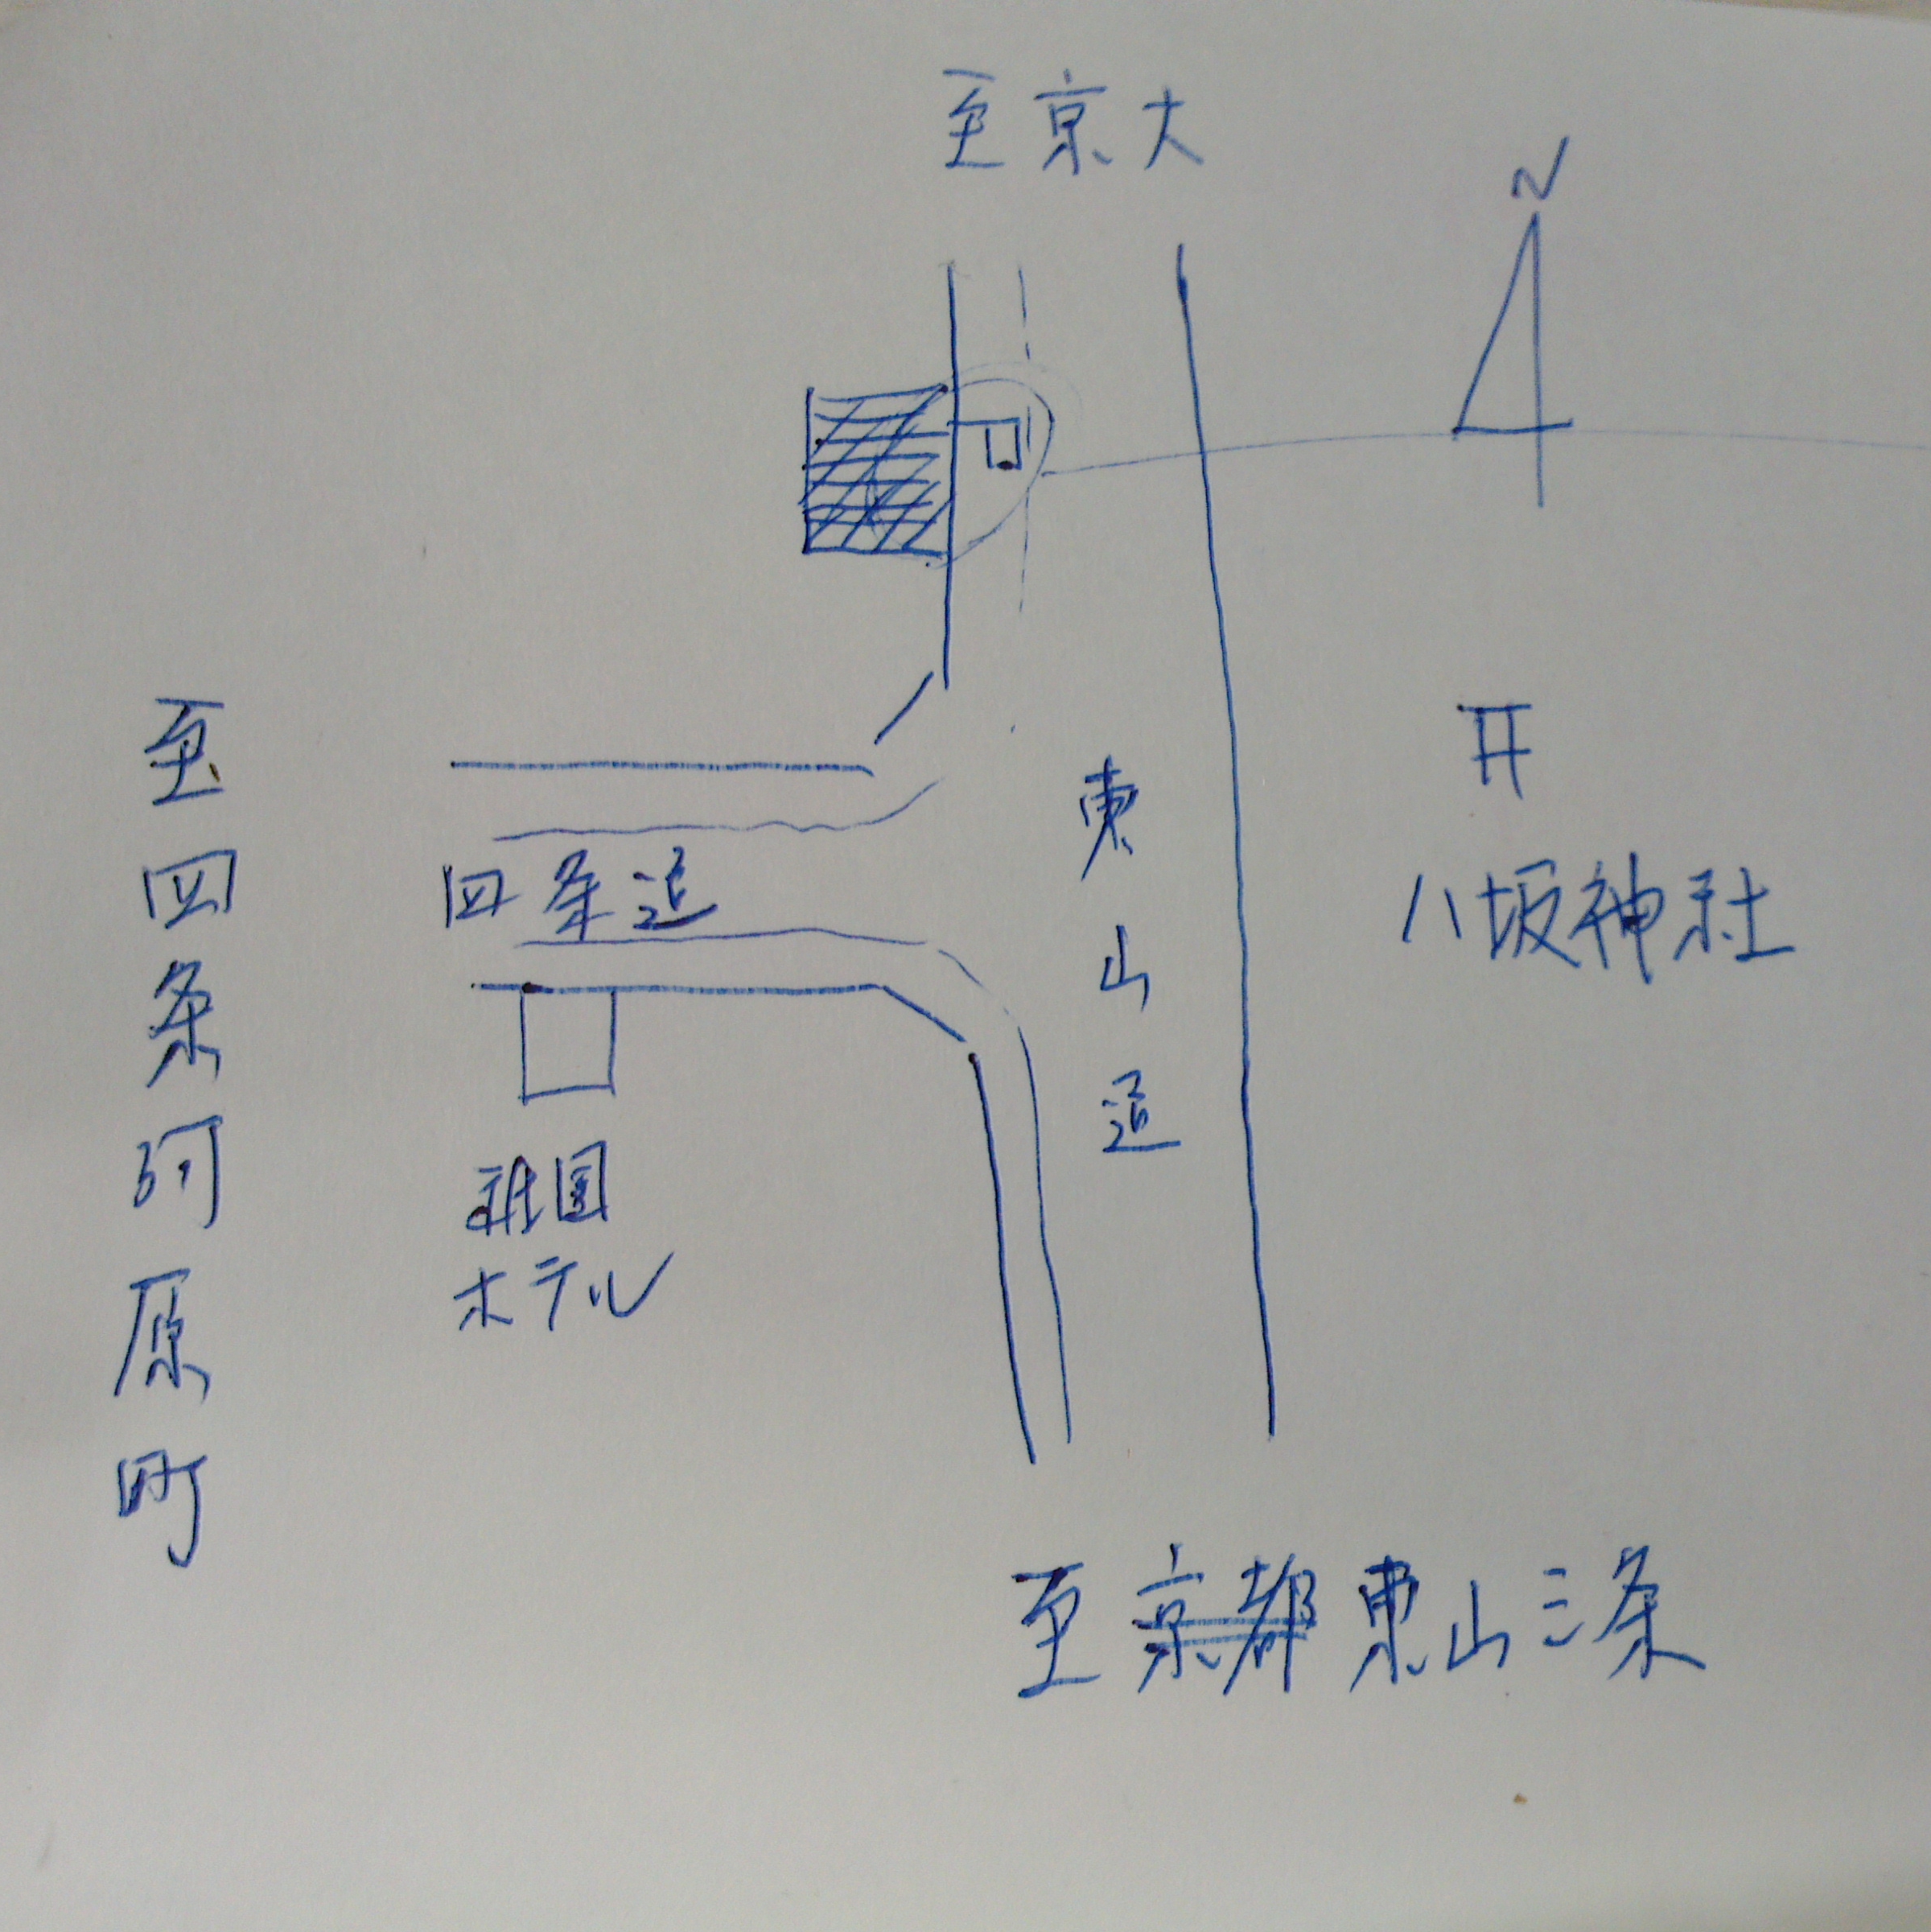 至京大
N
至四条河原町
四条通
東山通
八坂神社
祇園
ホテル
至京都東山三条